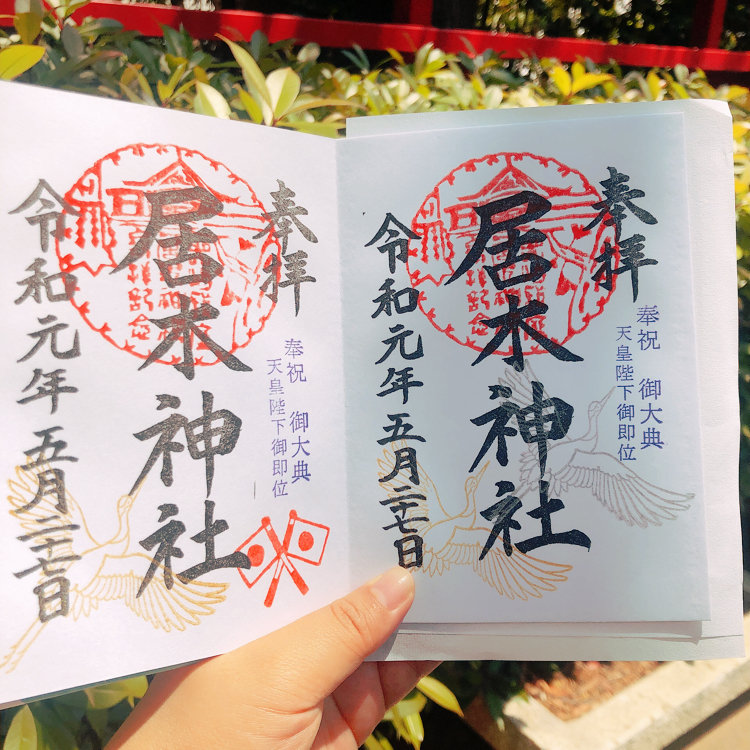 奉拝
居木神社
奉祝 御大典
天皇陛下御即位
令和元年五月二十七日
奉拝
居木神社
奉祝 御大典
天皇陛下御即位
令和元年五月二十七日